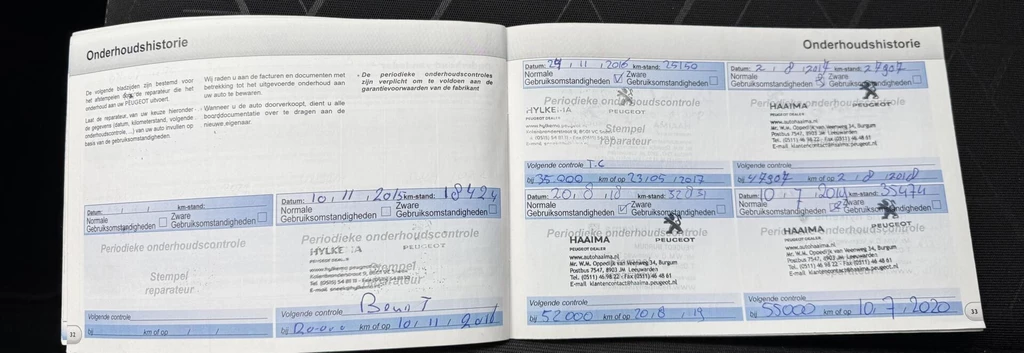 Onderhoudshistorie
De volgende bladzijden zijn bestemd voor
het afstempelen door de reparateur die het
onderhoud aan uw PEUGEOT uitvoert.
Laat de reparateur, van uw keuze hieronder
de gegevens (datum, kilometerstand, volgende
controle, ...) van uw auto invullen op
basis van de gebruiksomstandigheden.
Wij raden u aan de facturen en documenten met
betrekking tot het uitgevoerde onderhoud aan
uw auto te bewaren.
Wanneer u de auto doorverkoopt, dient u alle
boorddocumentatie over te dragen aan de
nieuwe eigenaar.
De periodieke onderhoudscontroles
zijn verplicht om te voldoen aan de
garantievoorwaarden van de fabrikant
Datum: / / km-stand:
Normale Zware
Gebruiksomstandigheden Gebruiksomstandigheden
Periodieke onderhoudscontrole
Stempel
reparateur
Volgende controle
bij km of op / /
32
Datum: 10, 11, 2015 km-stand: 18424
Normale Zware
Gebruiksomstandigheden Gebruiksomstandigheden
Periodieke onderhoudscontrole
PEUGEOT
PEUGEOT DEALER
Stempel
reparateur
Volgende controle
bij km of op 10, 11, 2016
Onderhoudshistorie
Datum: 29, 11, 2016 km-stand: 25150
Normale Zware
Gebruiksomstandigheden Gebruiksomstandigheden
Periodieke onderhoudscontrole
PEUGEOT
PEUGEOT DEALER
Stempel
reparateur
Volgende controle T.C
bij 35.000 km of op 23/05, 2017
Datum: 2, 8, 2017 km-stand: 27907
Normale Zware
Gebruiksomstandigheden Gebruiksomstandigheden
Periodieke onderhoudscontrole
HAAIMA PEUGEOT
PEUGEOT DEALER
www.autohaaima.nl
Mr. W.M. Oppedijk van Veenweg 34, Burgum
Postbus 7547, 8903 JM Leeuwarden
Tel. (0511) 46 98 22 - Fax (0511) 46 48 61
E-mail klantencontact@haaima.peugeot.nl
Volgende controle
bij 47907 km of op 2, 8, 2018
Datum: 20, 8, 18 km-stand: 32831
Normale Zware
Gebruiksomstandigheden Gebruiksomstandigheden
Periodieke onderhoudscontrole
HAAIMA PEUGEOT
PEUGEOT DEALER
www.autohaaima.nl
Mr. W.M. Oppedijk van Veenweg 34, Burgum
Postbus 7547, 8903 JM Leeuwarden
Tel. (0511) 46 98 22 - Fax (0511) 46 48 61
E-mail klantencontact@haaima.peugeot.nl
Volgende controle
bij 52000 km of op 20, 8, 19
Datum: 10, 7, km-stand: 35474
Normale Zware
Gebruiksomstandigheden Gebruiksomstandigheden
Periodieke onderhoudscontrole
HAAIMA PEUGEOT
PEUGEOT DEALER
www.autohaaima.nl
Mr. W.M. Oppedijk van Veenweg 34, Burgum
Postbus 7547, 8903 JM Leeuwarden
Tel. (0511) 46 98 22 - Fax (0511) 46 48 61
E-mail klantencontact@haaima.peugeot.nl
Volgende controle
bij 55000 km of op 10, 7, 2020
33